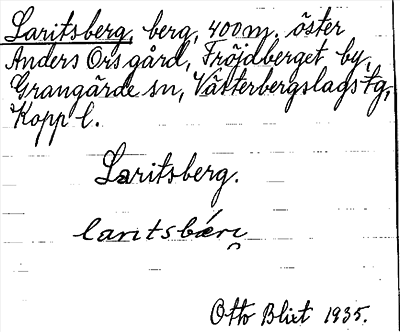 Laritsberg, berg, 400 m. öster
Anders Ors gård, Fröjdberget by,
Grangärde sn, Västerbergslags tg,
Kopp l.
Laritsberg.
Otto Blixt 1935.